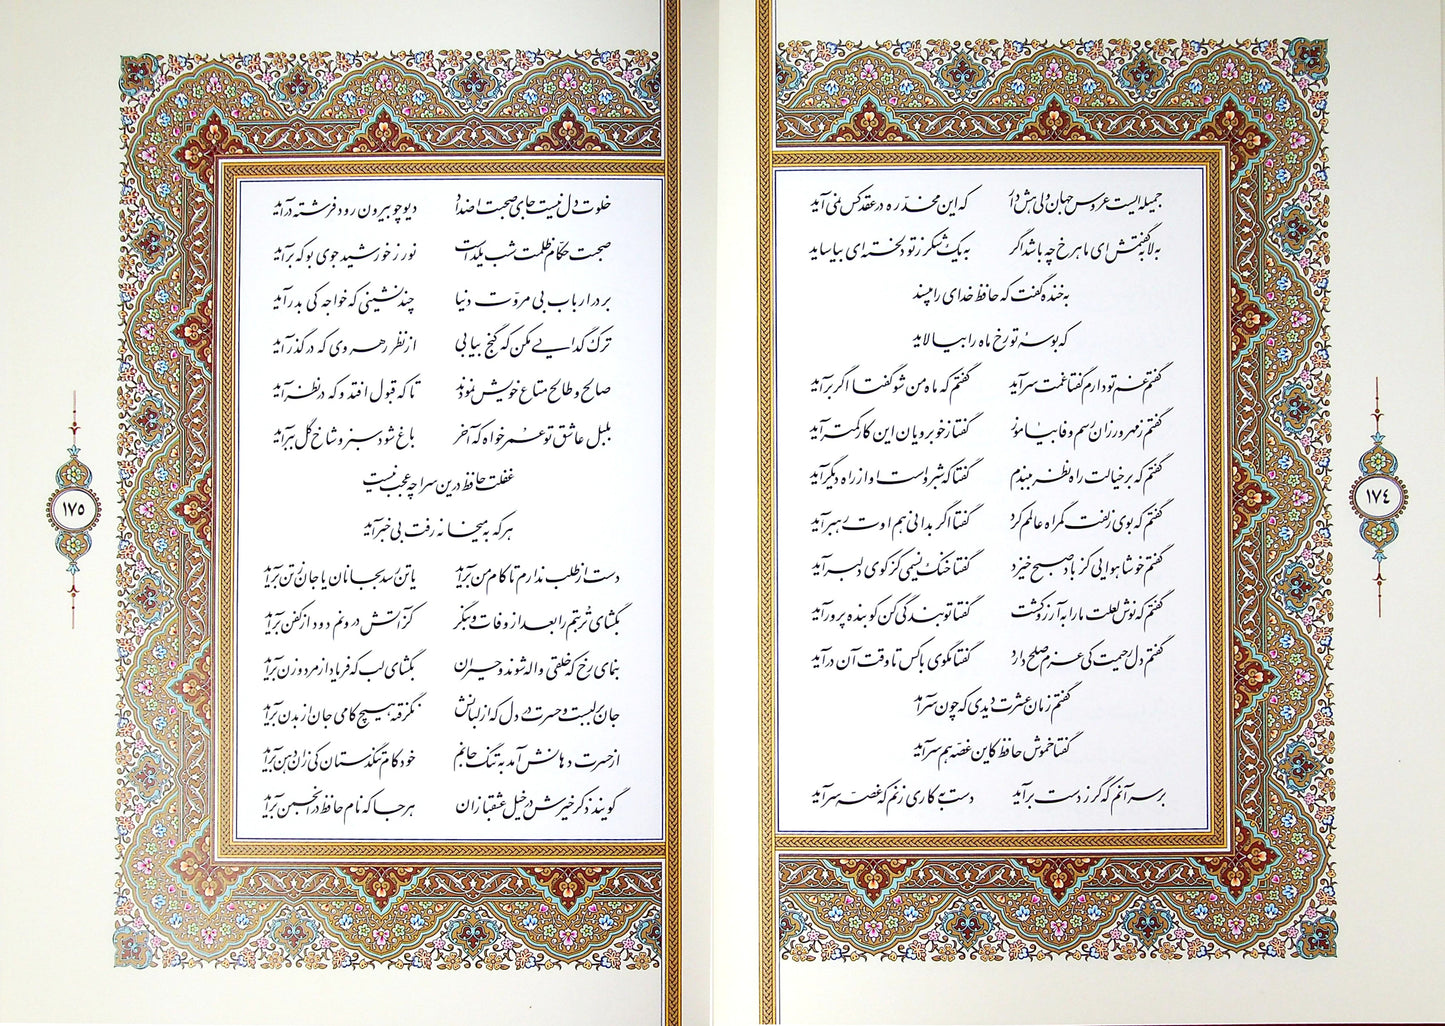 جمیله ایست عروس جهان ولی هش دار که این مخدّره در عقد کس نمی آید
به لابه گفتمش ای ماهرخ چه باشد اگر به یک شکر ز تو دلخسته ای بیاساید
به خنده گفت که حافظ خدای را مپسند
که بوسهٔ تو رخ ماه را بیالاید
گفتم غم تو دارم گفتا غمت سرآید گفتم که ماه من شو گفتا اگر برآید
گفتم ز مهرورزان رسم وفا بیاموز گفتا ز خوبرویان این کار کمتر آید
گفتم که بر خیالت راه نظر ببندم گفتا که شبروست او از راه دیگر آید
گفتم که بوی زلفت گمراه عالمم کرد گفتا اگر بدانی هم اوت رهبر آید
گفتم خوشا هوایی کز باد صبح خیزد گفتا خنک نسیمی کز کوی دلبر آید
گفتم که نوش لعلت ما را به آرزو کشت گفتا تو بندگی کن کو بنده پرور آید
گفتم دل رحیمت کی عزم صلح دارد گفتا مگوی با کس تا وقت آن درآید
گفتم زمان عشرت دیدی که چون سرآمد
گفتا خموش حافظ کاین غصّه هم سرآید
بر سر آنم که گر ز دست برآید دست به کاری زنم که غصه سرآید
۱۷٤
خلوت دل نیست جای صحبت اضداد دیو چو بیرون رود فرشته درآید
صحبت حکّام ظلمت شب یلداست نور ز خورشید جوی بو که برآید
بر در ارباب بی مروّت دنیا چند نشینی که خواجه کی بدرآید
ترک گدایی مکن که گنج بیابی از نظر رهروی که در گذر آید
صالح و طالح متاع خویش نمودند تا که قبول افتد و که در نظر آید
بلبل عاشق تو عمر خواه که آخر باغ شود سبز و شاخ گل ببر آید
غفلت حافظ درین سراچه عجب نیست
هر که به میخانه رفت بی خبر آید
دست از طلب ندارم تا کام من برآید یا تن رسد بجانان یا جان ز تن برآید
بگشای تربتم را بعد از وفات و بنگر کز آتش درونم دود از کفن برآید
بنمای رخ که خلقی واله شوند و حیران بگشای لب که فریاد از مرد و زن برآید
جان بر لبست و حسرت در دل که از لبانش نگرفته هیچ کامی جان از بدن برآید
از حسرت دهانش آمد به تنگ جانم خود کام تنگدستان کی زان دهن برآید
گویند ذکر خیرش در خیل عشقبازان هر جا که نام حافظ در انجمن برآید
۱۷۵